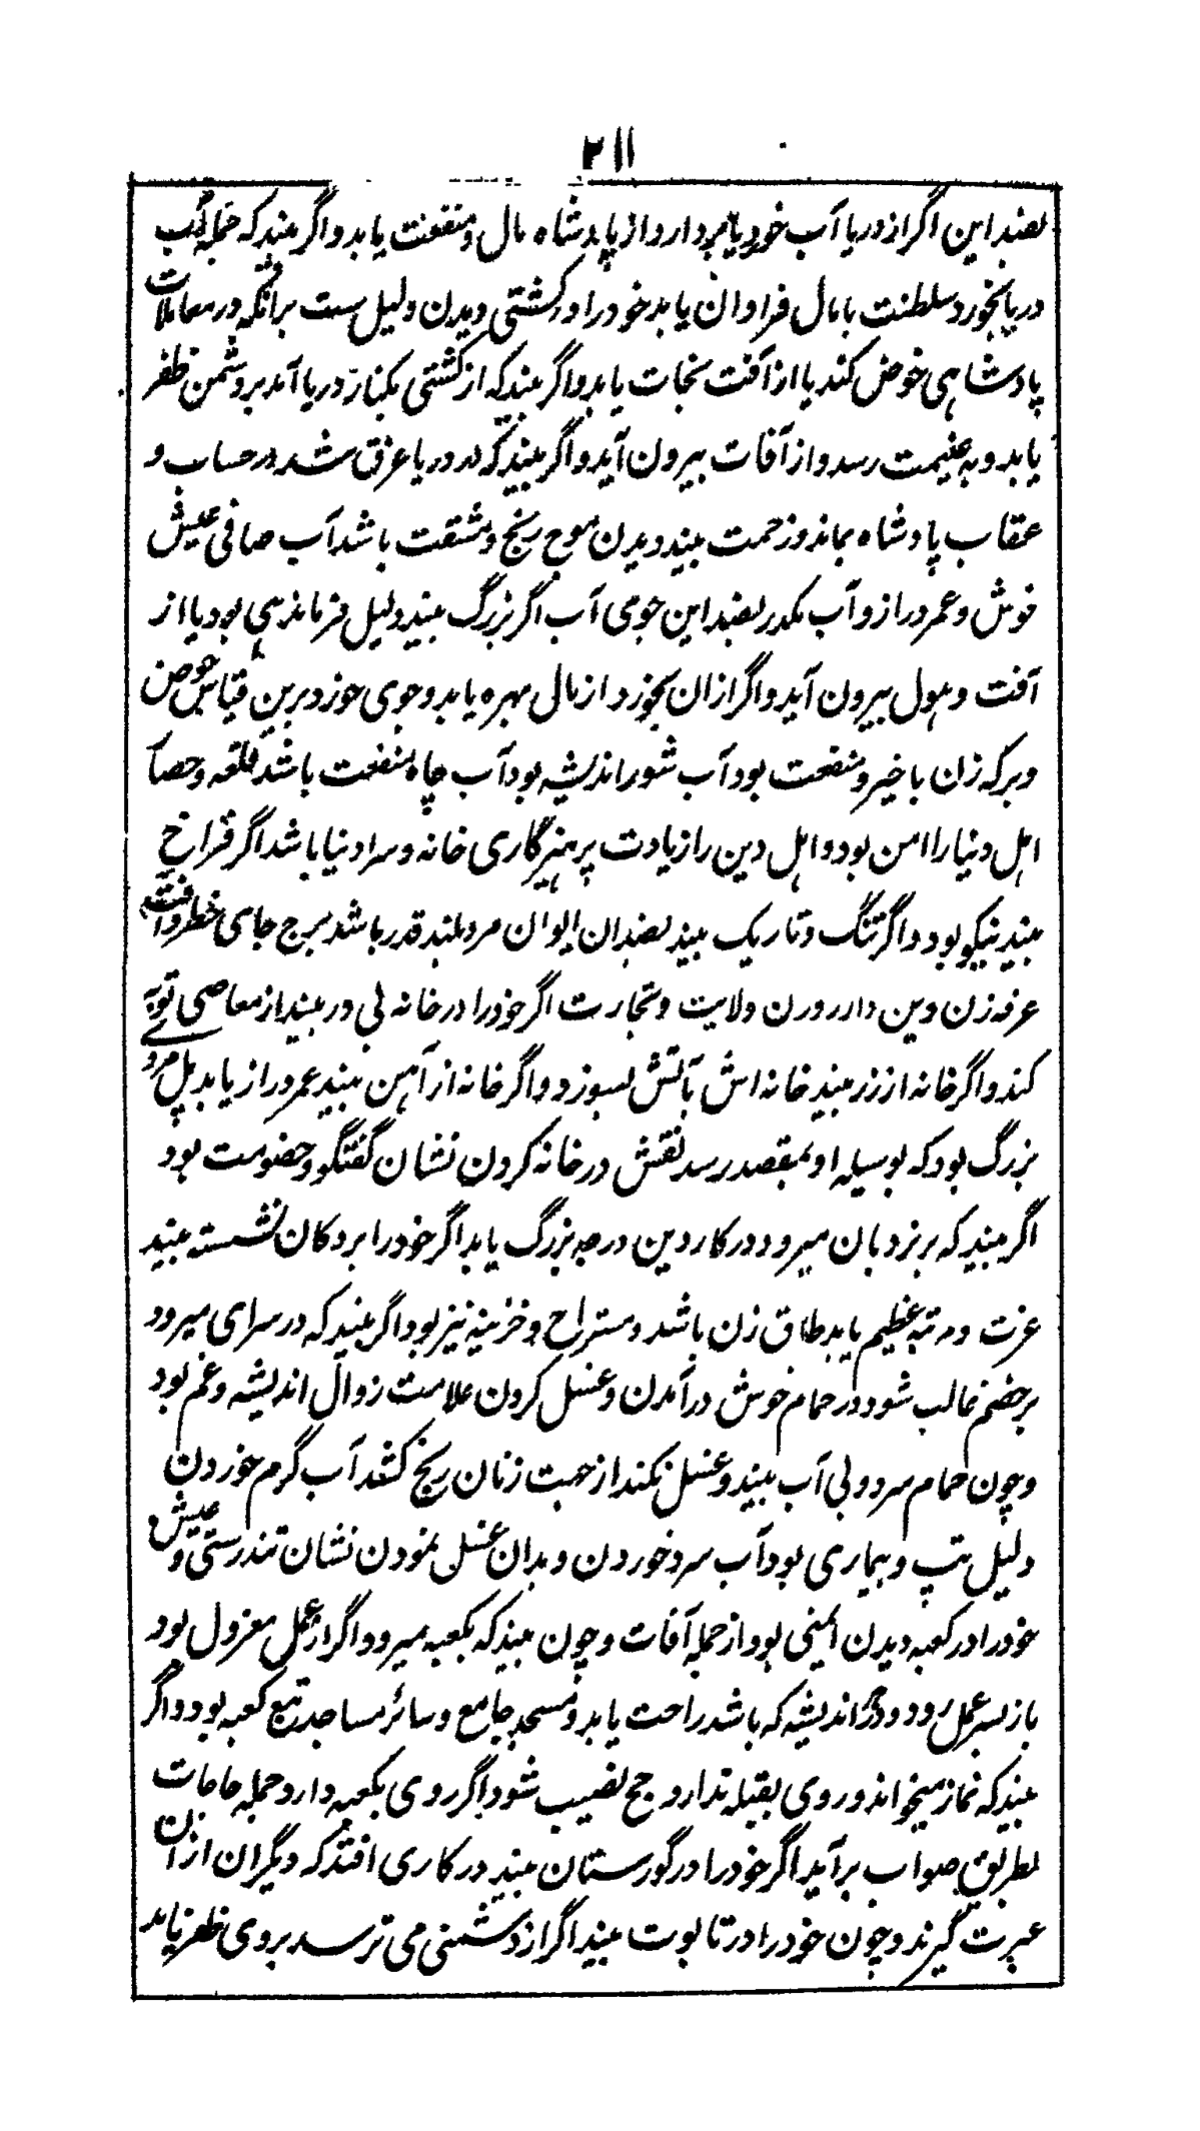 ۲۱۱
بضد این اگر از دریا آب خورد یا بردارد از پادشاه مال و منفعت یابد و اگر بیند که جمله آب
دریا بخورد سلطنت با مال فراوان یابد خود را در کشتی دیدن دلیل ست برانکه در معاملات
پادشاهی خوض کند یا از آفت نجات یابد و اگر بیند که از کشتی بکنار دریا آمد بر دشمن ظفر
یابد و به غنیمت رسد و از آفات بیرون آید و اگر بیند که در دریا غرق شد در حساب و
عقاب پادشاه بماند و زحمت بیند و دیدن موج رنج و مشقت باشد آب صافی عیش
خوش و عمر دراز و آب مکدر بضد این جوی آب اگر بزرگ بیند دلیل فرماندهی بود یا از
آفت و هول بیرون آید و اگر ازان بخورد از مال بهره یابد و جوی خورد برین قیاس حوض
و برکه زن با خیر و منفعت بود آب شور اندیشه بود آب چاه منفعت باشد قلعه و حصار
اهل دنیا را امن بود و اهل دین را زیادت پرهیزگاری خانه و سرا دنیا باشد اگر فراخ
بیند نیکو بود و اگر تنگ و تاریک بیند بضد ان ایوان مرد بلند قدر باشد برج جای خطر و آفت
غرفه زن دین دار روزن ولایت و تجارت اگر خود را در خانه بی در بیند از معاصی توبه
کند و اگر خانه از زر بیند خانه اش بآتش بسوزد و اگر خانه از آهن بیند عمر دراز یابد پل مرد
بزرگ بود که بوسیله او بمقصد رسد نقش در خانه کردن نشان گفتگو و خصومت بود
اگر بیند که بر نردبان میرود در کار دین درجه بزرگ یابد اگر خود را بر دکان نشسته بیند
عزت و مرتبه عظیم یابد طاق زن باشد و مستراح و خزینه نیز بود اگر بیند که در سرای میرود
بر خصم غالب شود در حمام خوش درآمدن و غسل کردن علامت زوال اندیشه و غم بود
و چون حمام سرد و بی آب بیند و غسل نکند از جهت زنان رنج کشد آب گرم خوردن
دلیل تپ و بیماری بود آب سرد خوردن و بدان غسل نمودن نشان تندرستی و عیش
خود را در کعبه دیدن ایمنی بود از جمله آفات و چون بیند که بکعبه میرود اگر از عمل معزول بود
باز بسر عمل رود و در هر اندیشه که باشد راحت یابد و مسجد جامع و سائر مساجد تبع کعبه بود و اگر
بیند که نماز میخواند و روی بقبله ندارد حج نصیب شود اگر روی بکعبه دارد جمله حاجات
بطریق صواب برآید اگر خود را در گورستان بیند در کاری افتد که دیگران از ان
عبرت گیرند و چون خود را در تابوت بیند اگر از دشمنی می ترسد بر وی ظفر یابد